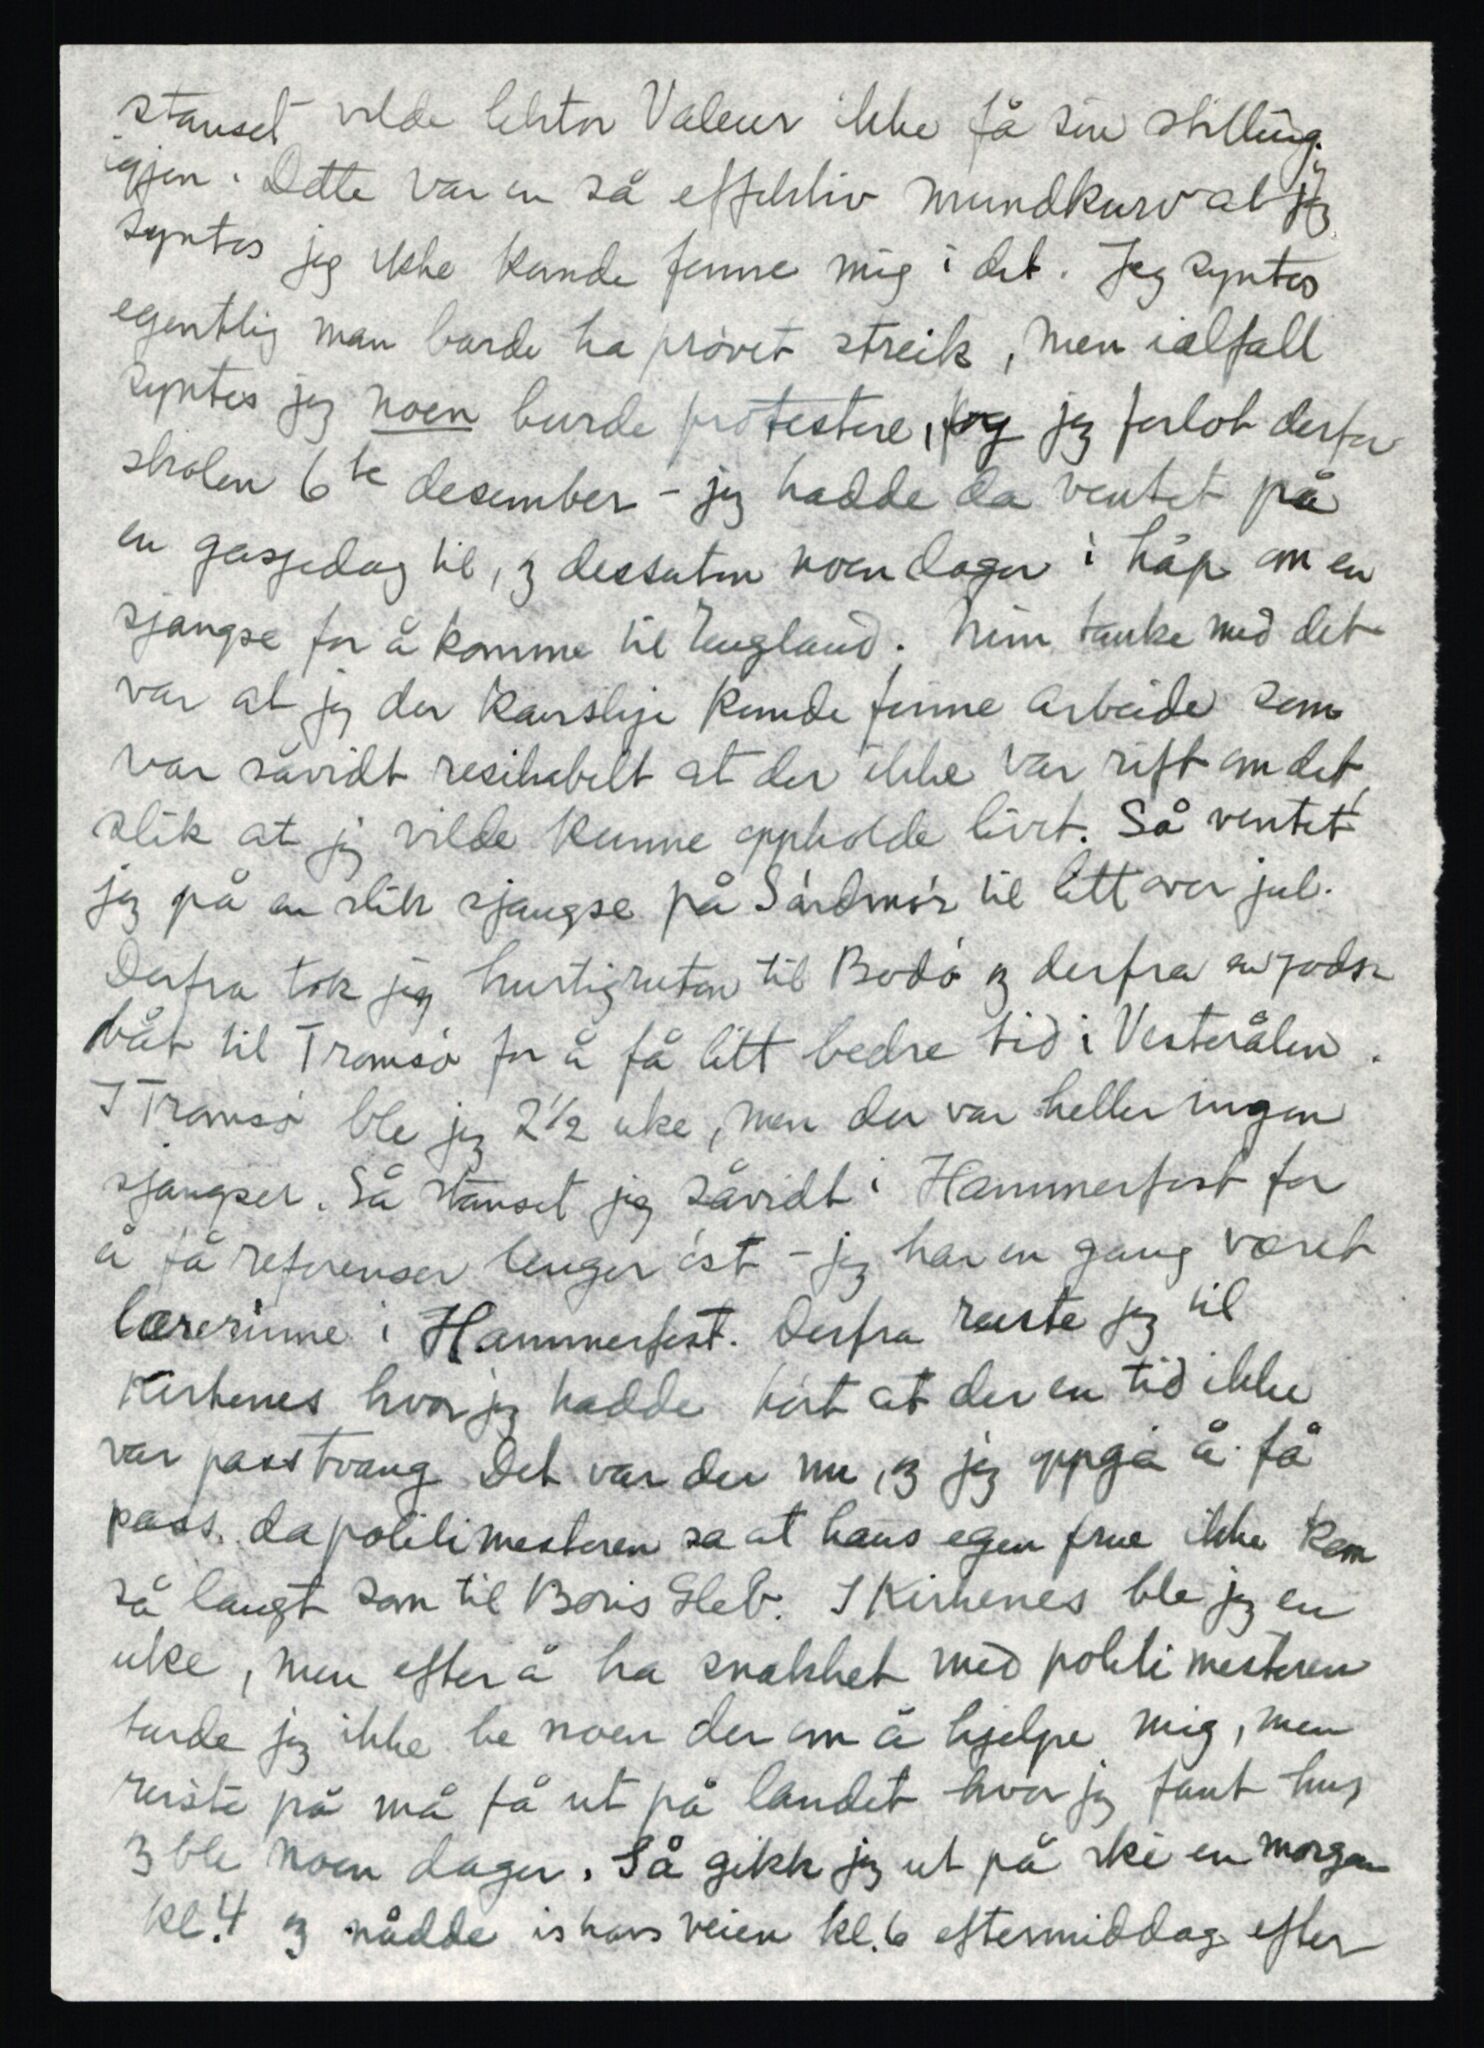 stanset vilde lektor Valeur ikke få sin stilling
igjen. Dette var en så effektiv mundkurv at jeg
syntes jeg ikke kunde finne mig i det. Jeg syntes
egentlig man burde ha prøvet streik, men ialfall
syntes jeg noen burde protestere, og jeg forlot derfor
skolen 6te desember - jeg hadde da ventet på
en gasjedag til, og dessuten noen dager i håp om en
sjangse for å komme til England. Min tanke med det
var at jeg der kanskje kunde finne arbeide som
var såvidt resikabelt at der ikke var rift om det,
slik at jeg vilde kunne opholde livet. Så ventet
jeg på en slik sjangse på Sørdmør til litt over jul.
Derfra tok jeg hurtigruten til Bodø og derfra en gods-
båt til Tromsø for å få litt bedre tid i Vesterålen.
I Tromsø ble jeg 2½ uke, men der var heller ingen
sjangser. Så stanset jeg såvidt i Hammerfest for
å få referenser lenger øst - jeg har en gang været
lærerinne i Hammerfest. Derfra reiste jeg til
Kirkenes hvor jeg hadde hørt at der en tid ikke
var passtvang. Det var der nu, og jeg oppga å få
pass. da politimesteren sa at hans egen frue ikke kom
så langt som til Boris Gleb. I Kirkenes ble jeg en
uke, men efter å ha snakket med politimesteren
turde jeg ikke be noen der om å hjelpe mig, men
reiste på må få ut på landet hvor jeg fant hus
og ble noen dager. Så gikk jeg ut på ski en morgen
kl. 4 og nådde ishavsveien kl. 6 eftermiddag efter